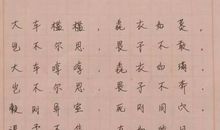 大车槛槛，毳衣如菼，
岂不尔思，畏子不敢。
大车啍啍，毳衣如璊，
岂不尔思，畏子不奔。
则异室，死则同穴，